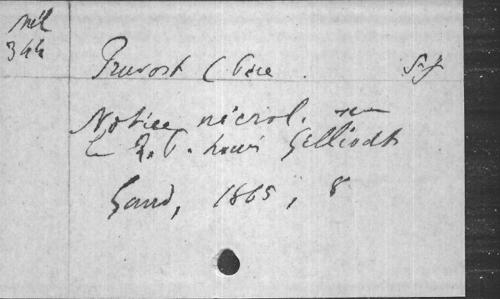 Mél
344
Pruvost (Père S.J.
Notice nécrol. sur
le R.P. Louis Gilliodts
Gand, 1865, 8